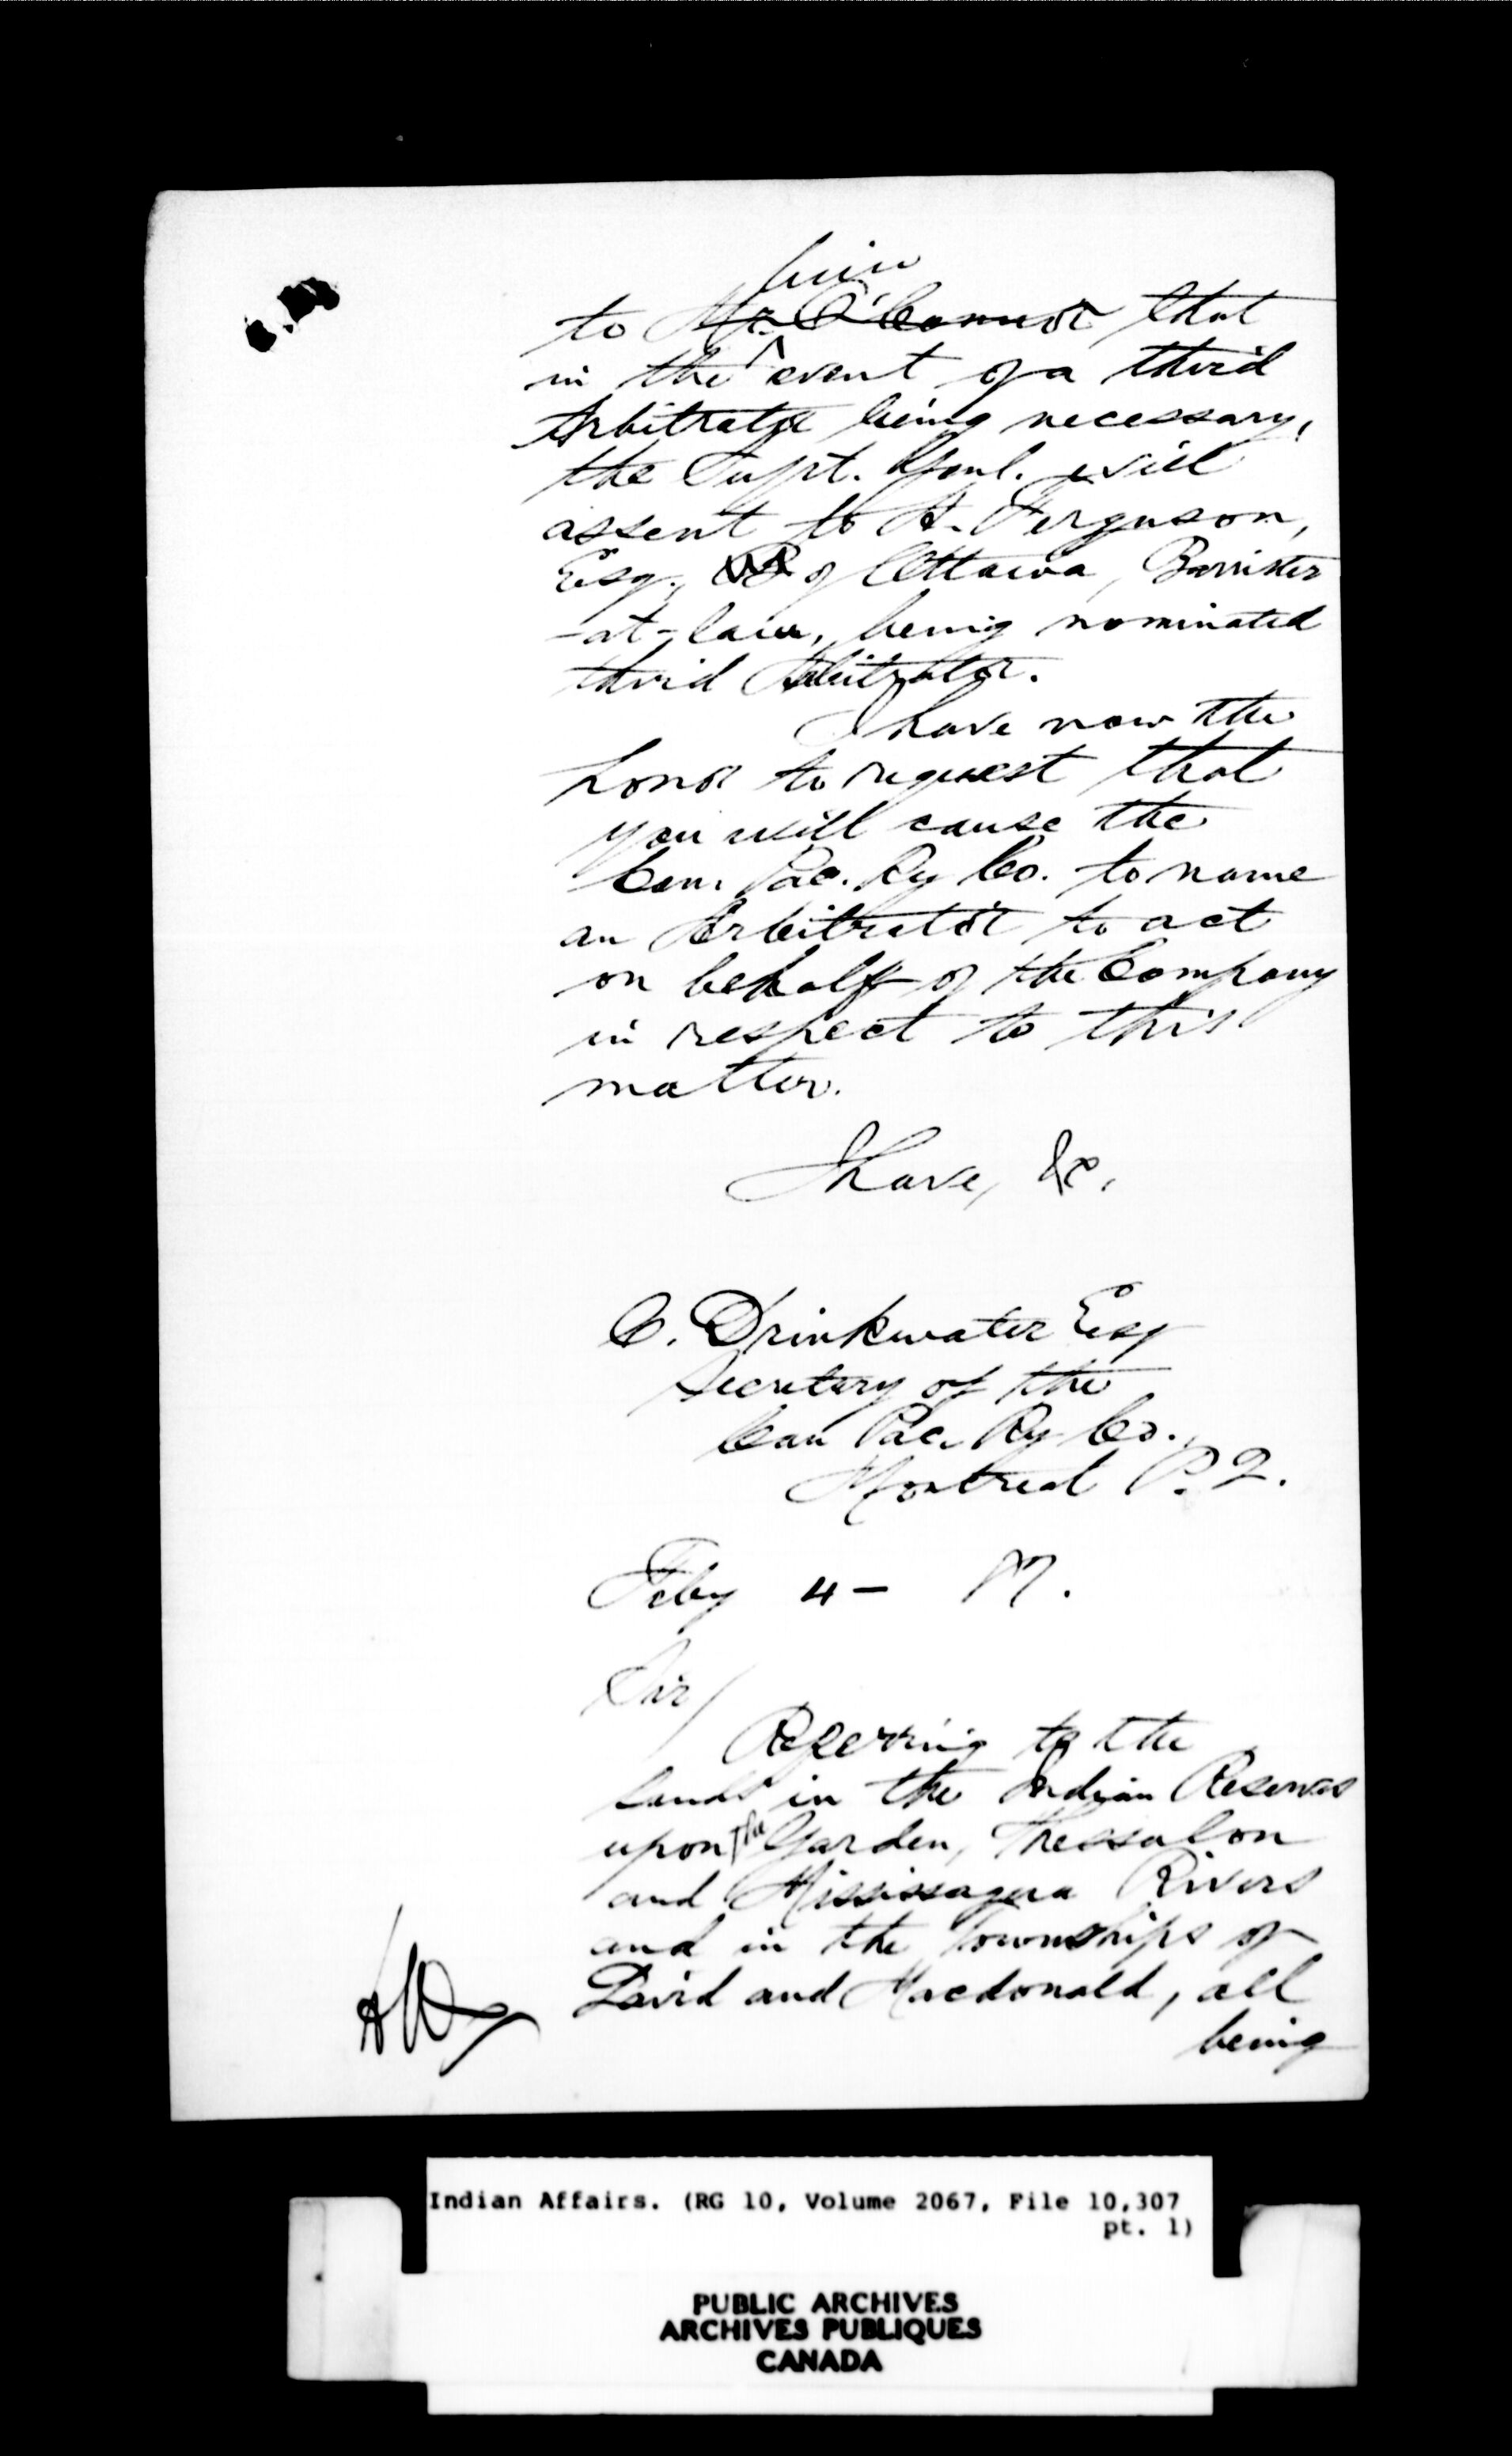 him
to Mr. O'Connor that
in the event of a third
Arbitrator being necessary,
the Supt. Genl. will
assent to A. Ferguson,
Esq., of Ottawa, Barrister
-at-law, being nominated
third Arbitrator.
I have now the
honor to request that
you will cause the
Can. Pac. Ry Co. to name
an Arbitrator to act
on behalf of the Company
in respect to this
matter.
I have, &c.
C. Drinkwater Esq
Secretary of the
Can Pac. Ry Co.
Montreal P.Q.
Feby 4 -
Sir/
Referring to the
lands in the Indian Reserves
upon the Garden, Thessalon
and Mississagua Rivers
and in the Townships of
Laird and Macdonald, all
being
Indian Affairs. (RG 10, Volume 2067, File 10,307
pt. 1)
PUBLIC ARCHIVES
ARCHIVES PUBLIQUES
CANADA